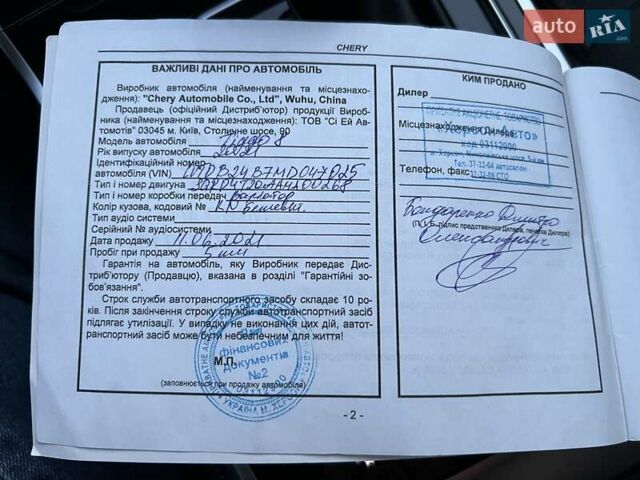 auto RIA.com
CHERY
ВАЖЛИВІ ДАНІ ПРО АВТОМОБІЛЬ
Виробник автомобіля (найменування та місцезнахо-
дження): "Chery Automobile Co., Ltd", Wuhu, China
Продавець (офіційний Дистриб'ютор) продукції Виробника (найменування та місцезнаходження): ТОВ "Сі Ей Ав-
томотів" 03045 м. Київ, Столичне шосе, 90
Модель автомобіля Tiggo 8
Рік випуску автомобіля 2021
Ідентифікаційний номер
автомобіля (VIN)
Тип і номер двигуна
Тип і номер коробки передач варіатор
Колір кузова, кодовий №
Тип аудіо системи
Серійний № аудіосистеми
Дата продажу 11.06.2021
Пробіг при продажу 5 км
Гарантія на автомобіль, яку Виробник передає Дис-
триб'ютору (Продавцю), вказана в розділі "Гарантійні зо-
бов'язання".
Строк служби автотранспортного засобу складає 10 ро-
ків. Після закінчення строку служби автотранспортний засіб
підлягає утилізації. У випадку не виконання цих дій, автот-
ранспортний засіб може бути небезпечним для життя!
М.П.
(заповнюється при продажу автомобіля)
фінансових
документів
№2
УКРАЇНА М. ХЕРСОН
КИМ ПРОДАНО
Дилер
"Херсон-АВТО"
код 03112900
Місцезнаходження Дилера
Тел. 37-32-64 автосалон
Телефон, факс
Бондаренко Дмитро
(П.І.Б., підпис представника Дилера, печатка Дилера)
Олександрович
- 2 -